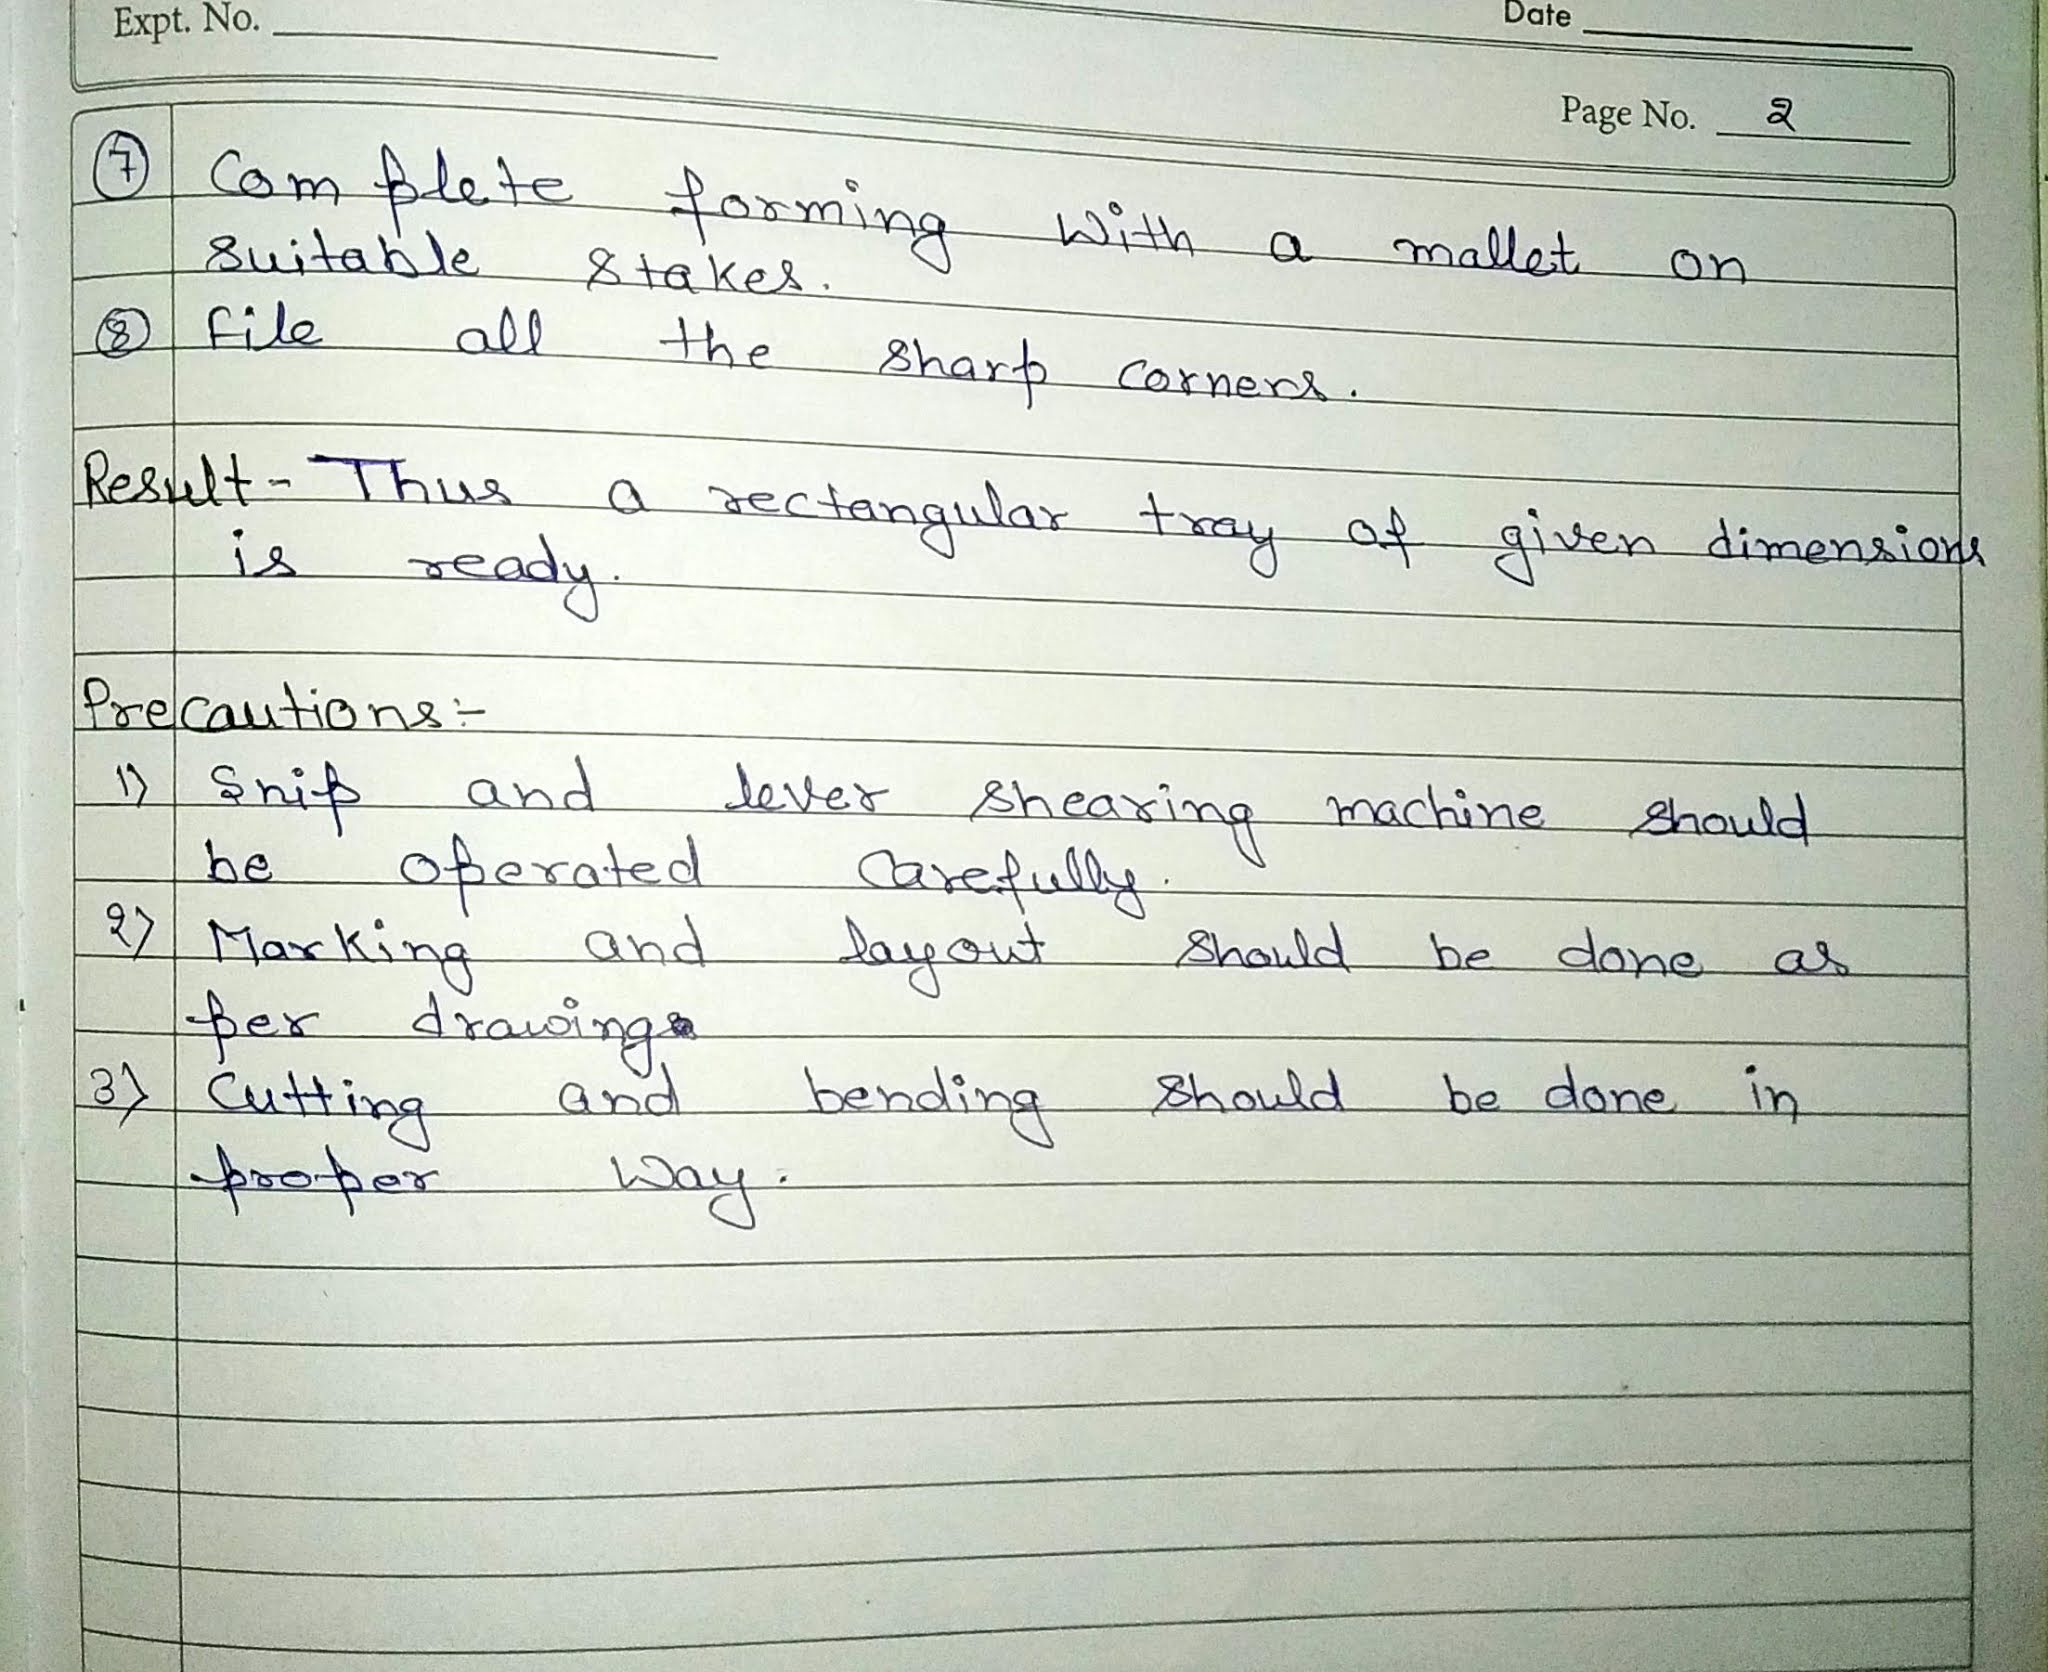 Expt. No.
Date
Page No. 2
7 Complete forming with a mallet on
suitable stakes.
8 File all the sharp corners.
Result - Thus a rectangular tray of given dimensions
is ready.
Precautions :-
1) Snip and lever shearing machine should
be operated carefully.
2) Marking and layout should be done as
per drawing
3) Cutting and bending should be done in
proper way.